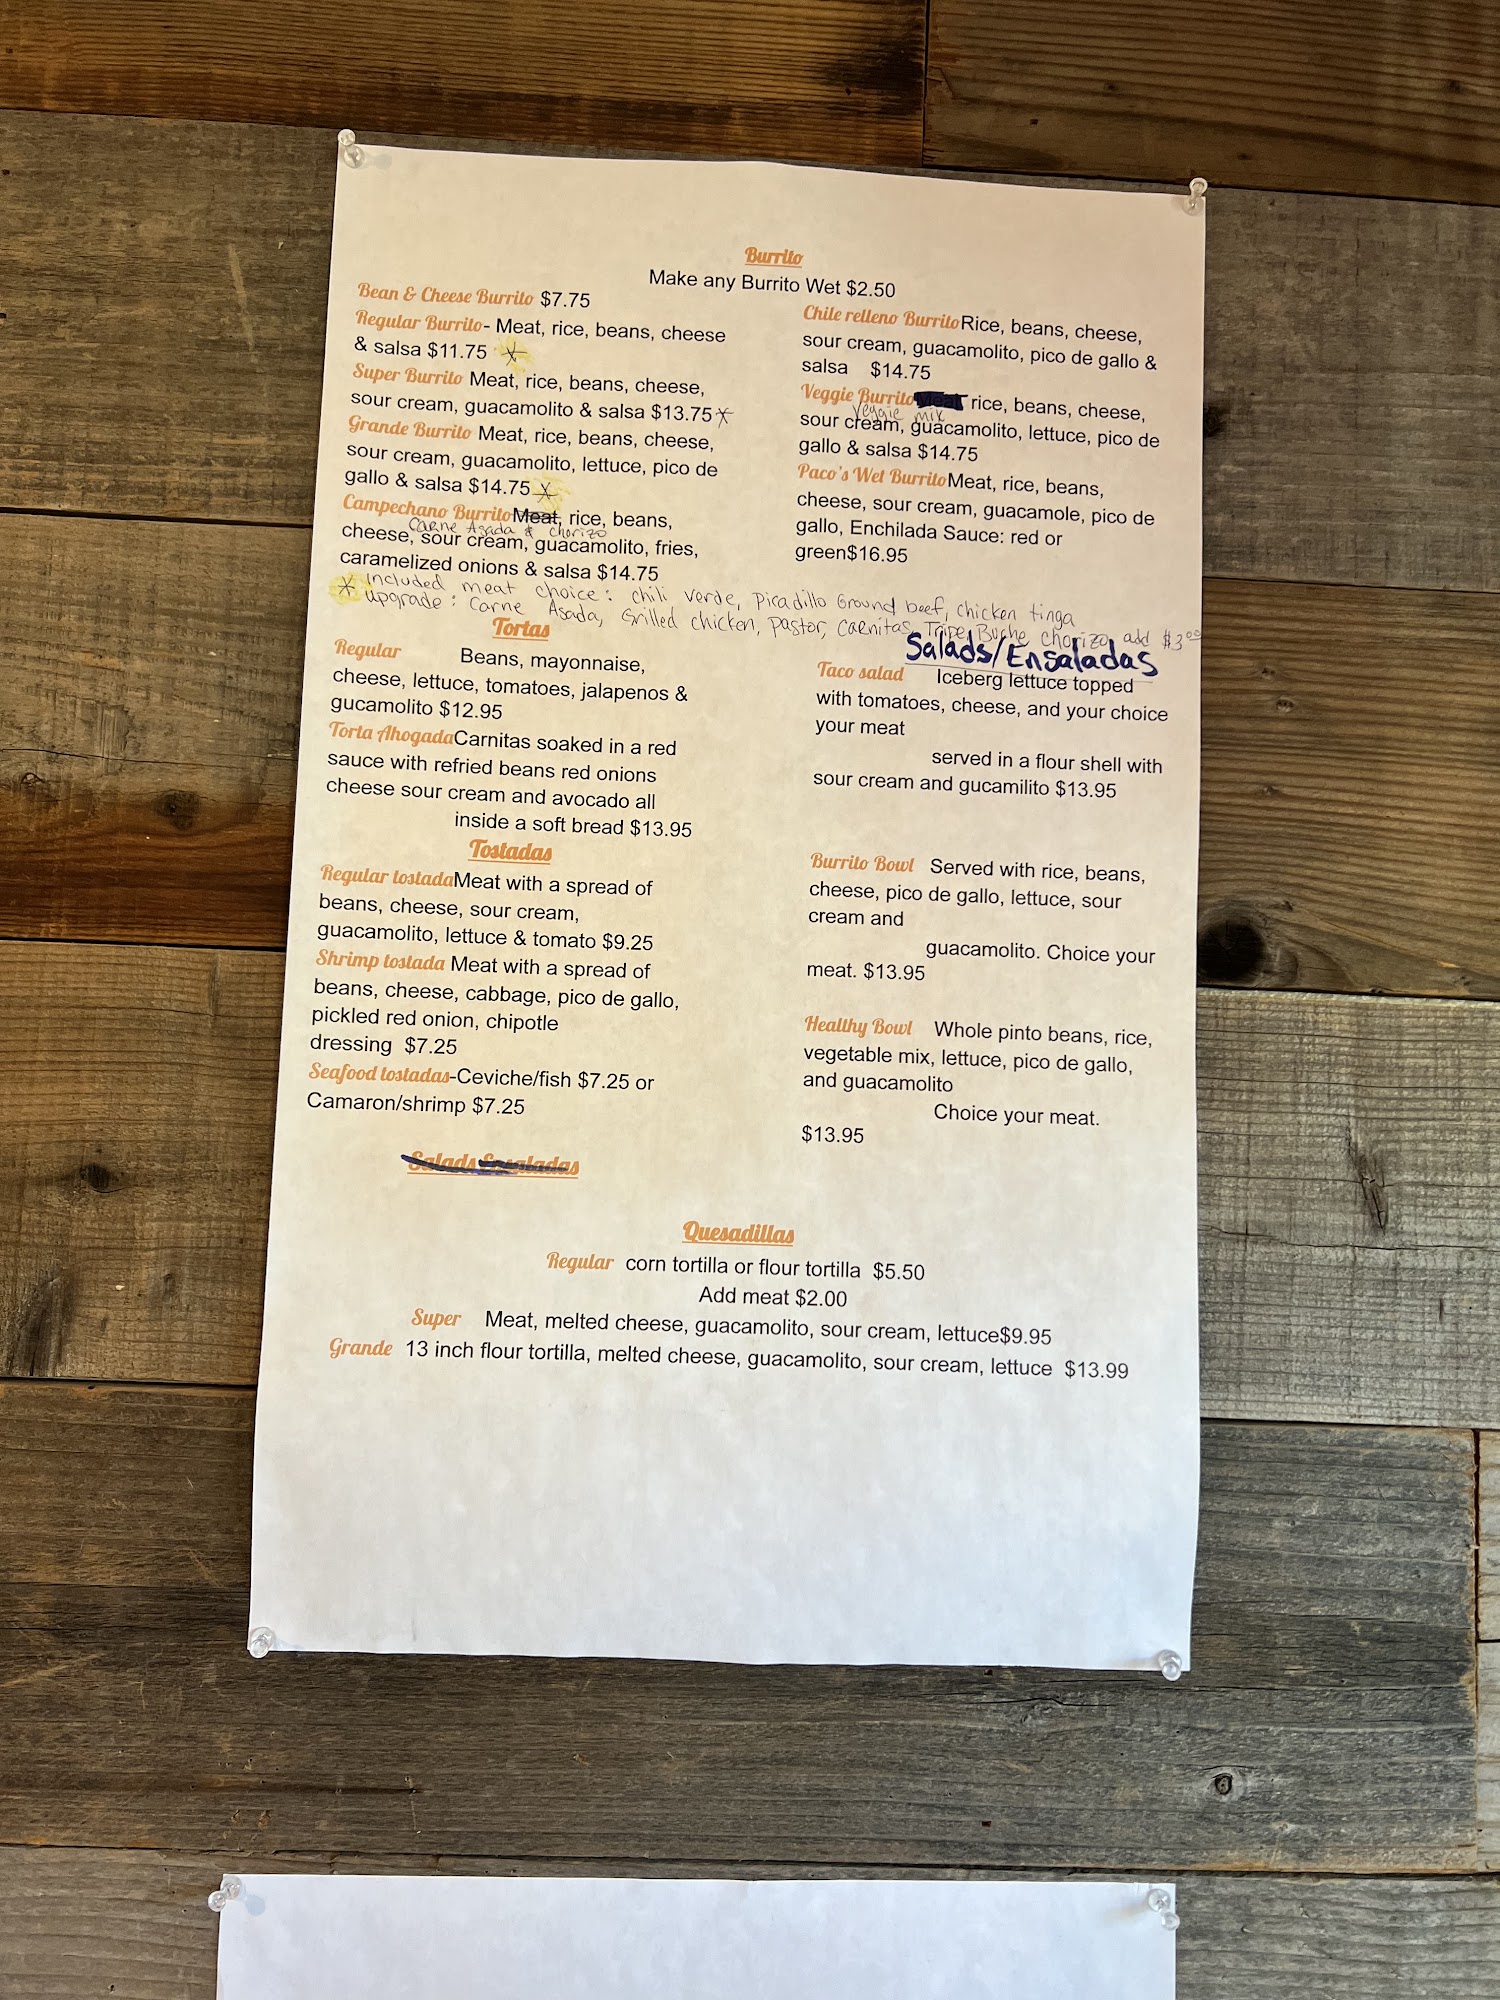 Burrito
Make any Burrito Wet $2.50
Bean & Cheese Burrito $7.75
Regular Burrito- Meat, rice, beans, cheese
& salsa $11.75 *
Super Burrito Meat, rice, beans, cheese,
sour cream, guacamolito & salsa $13.75 *
Grande Burrito Meat, rice, beans, cheese,
sour cream, guacamolito, lettuce, pico de
gallo & salsa $14.75 *
Campechano Burrito Meat, rice, beans,
Carne Asada & chorizo
cheese, sour cream, guacamolito, fries,
caramelized onions & salsa $14.75
Chile relleno Burrito Rice, beans, cheese,
sour cream, guacamolito, pico de gallo &
salsa $14.75
Veggie Burrito Meat rice, beans, cheese,
veggie mix
sour cream, guacamolito, lettuce, pico de
gallo & salsa $14.75
Paco's Wet Burrito Meat, rice, beans,
cheese, sour cream, guacamole, pico de
gallo, Enchilada Sauce: red or
green$16.95
* included meat choice: chili verde, picadillo Ground beef, chicken tinga
upgrade: Carne Asada, Grilled chicken, pastor, carnitas, Tripe, Buche, chorizo add $3.00
Tortas
Regular Beans, mayonnaise,
cheese, lettuce, tomatoes, jalapenos &
gucamolito $12.95
Torta Ahogada Carnitas soaked in a red
sauce with refried beans red onions
cheese sour cream and avocado all
inside a soft bread $13.95
Tostadas
Regular tostada Meat with a spread of
beans, cheese, sour cream,
guacamolito, lettuce & tomato $9.25
Shrimp tostada Meat with a spread of
beans, cheese, cabbage, pico de gallo,
pickled red onion, chipotle
dressing $7.25
Seafood tostadas-Ceviche/fish $7.25 or
Camaron/shrimp $7.25
Salads Ensaladas
Salads/Ensaladas
Taco salad Iceberg lettuce topped
with tomatoes, cheese, and your choice
your meat
served in a flour shell with
sour cream and gucamilito $13.95
Burrito Bowl Served with rice, beans,
cheese, pico de gallo, lettuce, sour
cream and
guacamolito. Choice your
meat. $13.95
Healthy Bowl Whole pinto beans, rice,
vegetable mix, lettuce, pico de gallo,
and guacamolito
Choice your meat.
$13.95
Quesadillas
Regular corn tortilla or flour tortilla $5.50
Add meat $2.00
Super Meat, melted cheese, guacamolito, sour cream, lettuce$9.95
Grande 13 inch flour tortilla, melted cheese, guacamolito, sour cream, lettuce $13.99